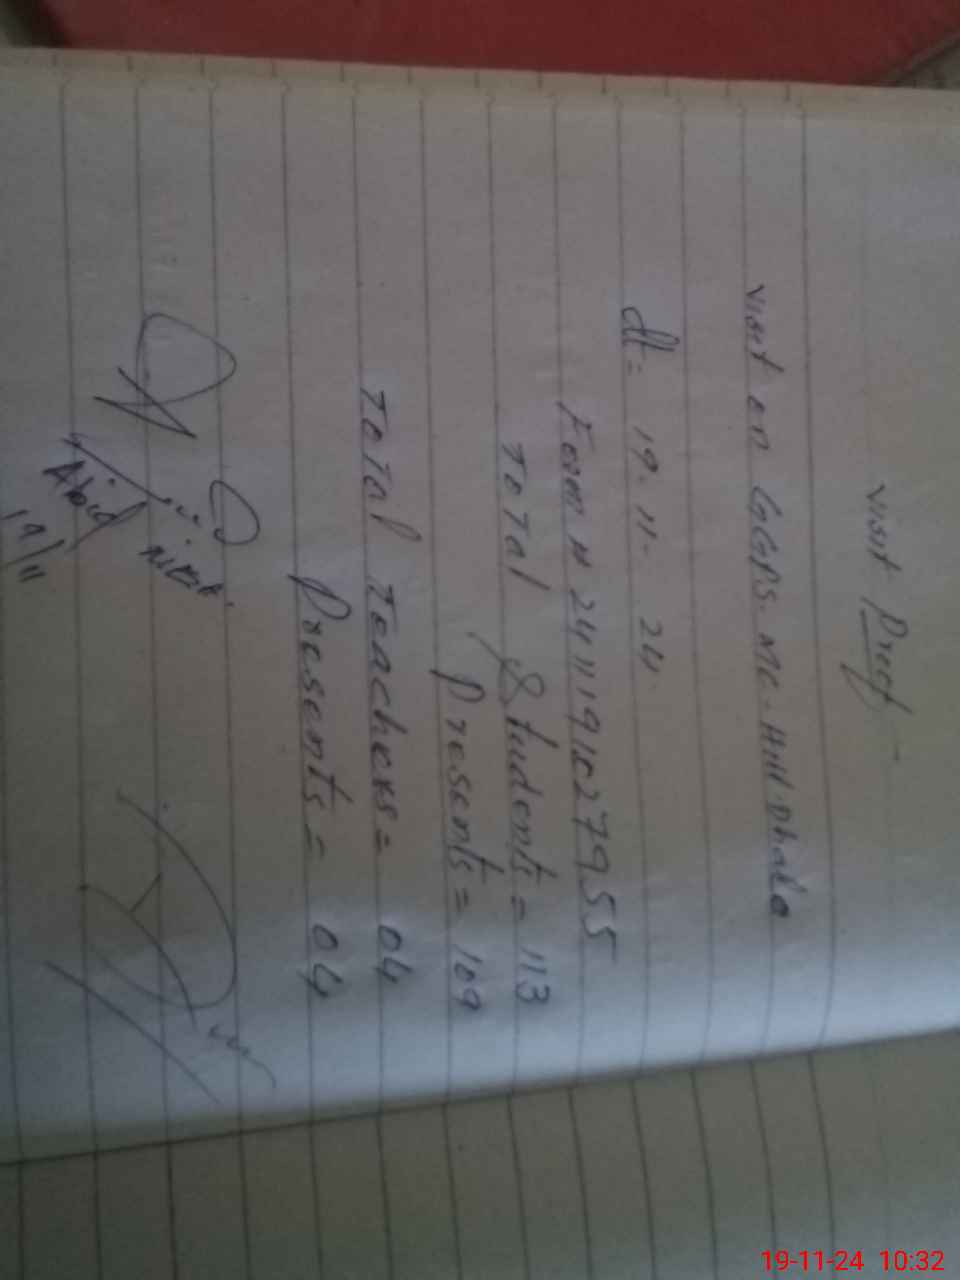 Visit Proof
Visit on GGPS. MC-Hill Dhala
dt= 19.11.24
Form # 2411191527955
Total Students = 113
Presents = 109
Total Teachers = 04
Presents = 04
Abid
19/11
19-11-24 10:32